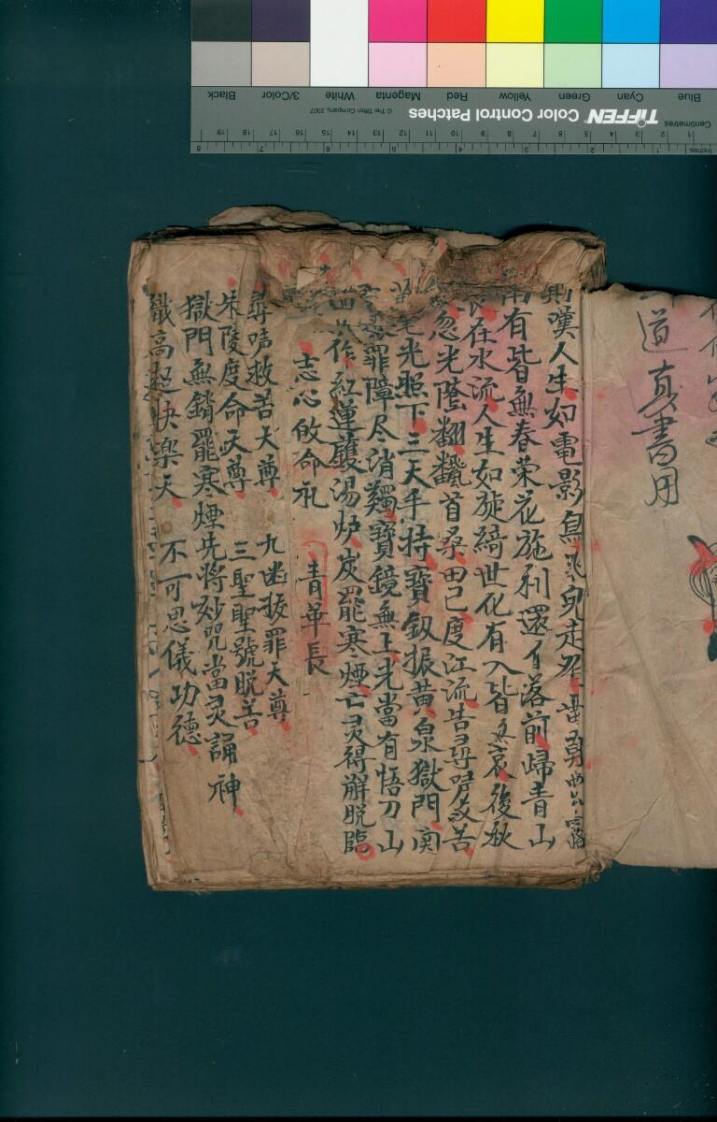 道真書用
嘆人生如電影鳥飛兔走
有皆無春荣花施利還自落前歸青山
在水流人生如旋綺世化有入皆
後秋
忽光陰翻飜首桑田已度江流苦尋声救苦
毛光照下三天手持寶釰振黄泉獄門関
罪障尽消蠲寶鏡無上光當有悟刀山
作紅蓮護湯炉炭罷寒煙亡灵得觧脱臨
志心啟命礼 青華長
尋声救苦天尊 九幽拔罪天尊
朱陵度命天尊 三聖聖號脱苦
獄門無鎖罷寒煙先將妙咒當灵誦神
識高超快楽天 不可思儀功德
Blue
Cyan
Green
Yellow
Red
Magenta
White
3/Color
Black
TIFFEN Color Control Patches
© The Tiffen Company, 2007
Centimetres
Inches